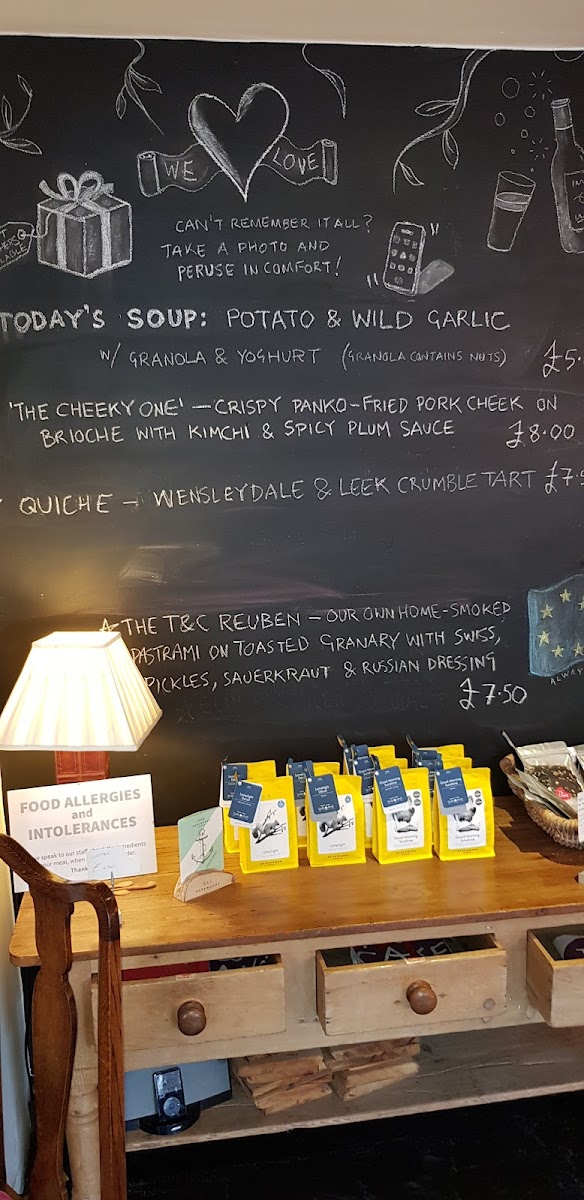 WE LOVE
CAN'T REMEMBER IT ALL?
TAKE A PHOTO AND
PERUSE IN COMFORT!
TODAY'S SOUP: POTATO & WILD GARLIC
W/ GRANOLA & YOGHURT (GRANOLA CONTAINS NUTS) £5.
'THE CHEEKY ONE' — CRISPY PANKO-FRIED PORK CHEEK ON
BRIOCHE WITH KIMCHI & SPICY PLUM SAUCE £8.00
QUICHE — WENSLEYDALE & LEEK CRUMBLE TART £7.5
THE T&C REUBEN — OUR OWN HOME-SMOKED
PASTRAMI ON TOASTED GRANARY WITH SWISS,
PICKLES, SAUERKRAUT & RUSSIAN DRESSING
£7.50
ALWAY
FOOD ALLERGIES
and
INTOLERANCES
speak to our staff
your meal, when
Thank